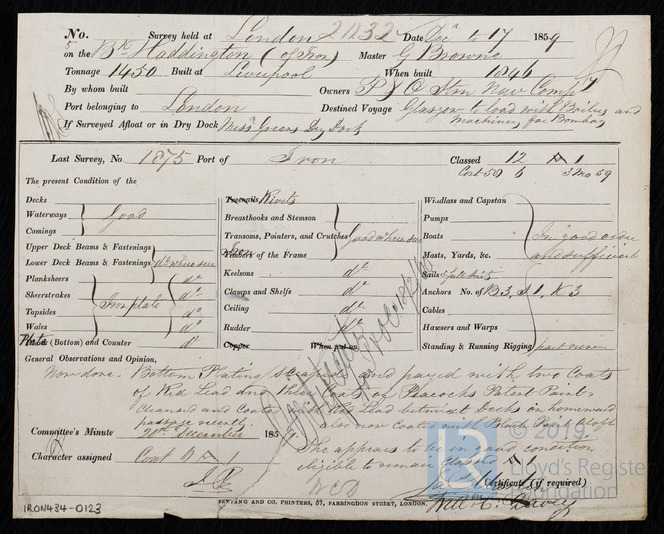 No. Survey held at London 21132 Date Decr to 17 1859
on the Bk Haddington (of Iron) Master G Browne
Tonnage 1450 Built at Liverpool When built 1846
By whom built Owners P & O Stm Nav Compy
Port belonging to London Destined Voyage Glasgow to load with Boilers and
Machinery for Bombay
If Surveyed Afloat or in Dry Dock Messrs Greens Dry Dock
Last Survey, No. 1875 Port of Iron Classed 12 A 1
Cont 58 6 3 Mo 59
The present Condition of the
Decks
Waterways Good
Comings
Upper Deck Beams & Fastenings
Lower Deck Beams & Fastenings do where seen
Planksheers do
Sheerstrakes Iron plate do
Topsides do
Wales do
Plate (Bottom) and Counter do
Treenails Rivets
Breasthooks and Stemson
Transoms, Pointers, and Crutches Good where seen
Iron
Timbers of the Frame
Keelsons do
Clamps and Shelfs do
Ceiling do
Rudder do
Copper When put on
Windlass and Capstan
Pumps
Boats In good order
Masts, Yards, &c. and sufficient
Sails
Anchors No. of B 3, S 1, K 3
Cables
Hawsers and Warps
Standing & Running Rigging part new
General Observations and Opinion,
Now done. Bottom Plating scraped and payed with two Coats
of Red Lead and three Coats of Peacocks Patent Paint,
Cleansed and Coated with Red Lead betwixt Decks on homeward
passage recently also now Coated with Black Paint aloft
Committee's Minute 20th December 1859.
She appears to be in good condition
eligible to remain Classed
Character assigned Cont A
Certificate (if required)
Willm C. Davey
BENTENG AND CO. PRINTERS, 37, FARRINGDON STREET, LONDON.
IRON434-0123
© 2019
Lloyd's Register
Foundation